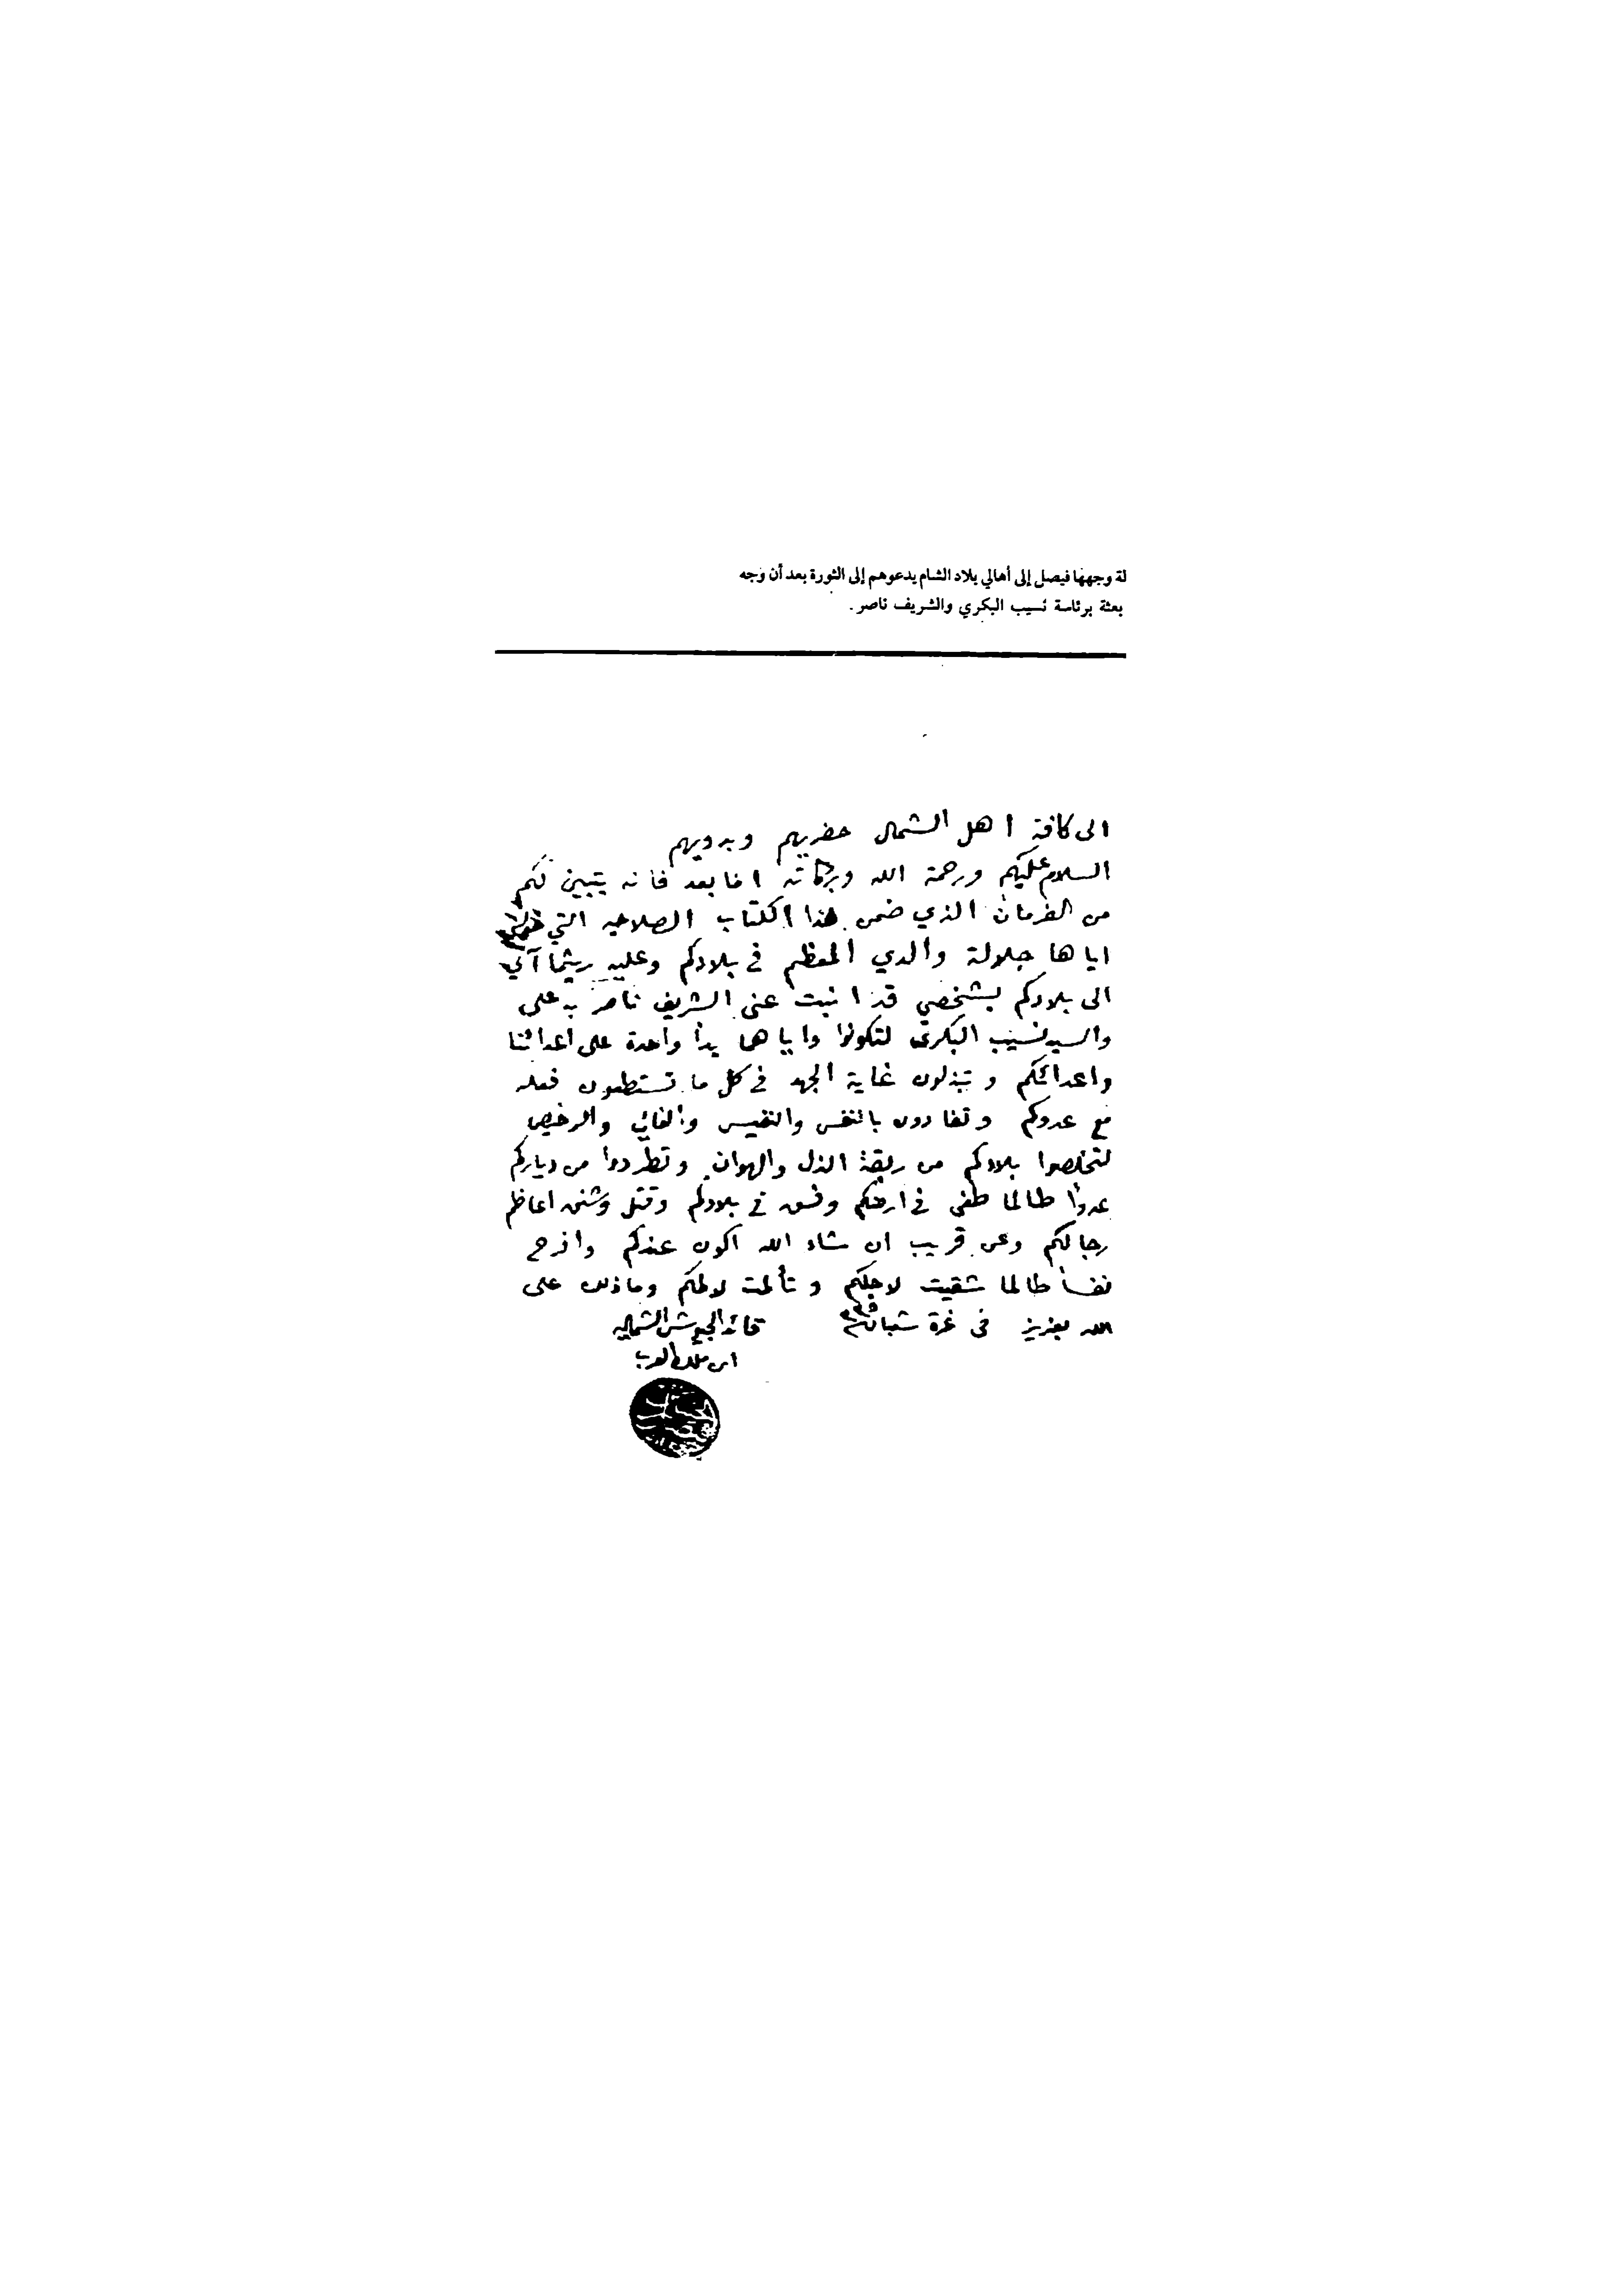 لة وجهها فيصل إلى أهالي بلاد الشام يدعوهم إلى الثورة بعد أن وجه
بعثة برئاسة نسيب البكري والشريف ناصر .
الى كافة اهل الشمال حضريهم وبدويهم
السلام عليكم ورحمة الله وبركاته اما بعد فانه يتبين لكم
من الفرمان الذي ضمن هذا الكتاب الصلاحيه التي خولني
اياها جلالة والدي المعظم في بلادكم وعليه ريثما آتي
الى بلادكم بشخصي قد انبت عني الشريف ناصر بن على
والسيد نسيب البكرى لتكونوا واياهما يداً واحدة على اعدائنا
واعدائكم وتبذلون غاية الجهد في كل ما تستطيعون فعله
مع عدوكم وتفادون بالنفس والنفيس والغالي والرخيص
لتخلصوا بلادكم من ربقة الذل والهوان وتطردوا من دياركم
عدواً طالما طغى في ارضكم وفسق في بلادكم وقتل وشنق اعاظم
رجالكم وعن قريب ان شاء الله اكون عندكم وافرح
نفساً طالما شقيت لاجلكم وتألمت لالمكم وما ذلك على
الله بعزيز في غرة شعبان قائد الجيوش الشماليه
ابن ملك العرب